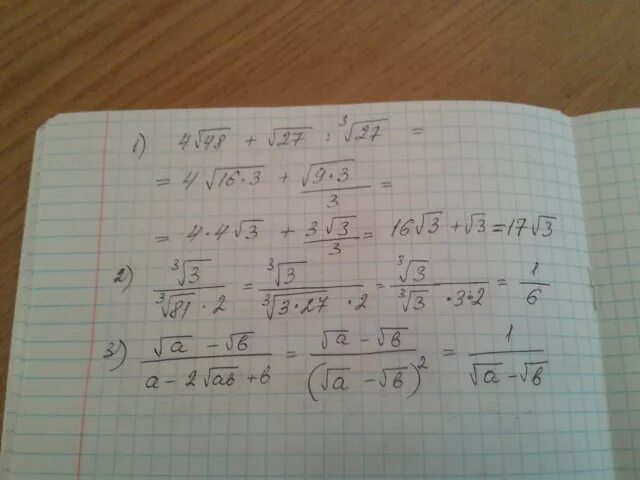 1) 4√48 + √27 : ∛27 =
= 4√(16·3) + √(9·3)/3 =
= 4·4√3 + 3√3/3 = 16√3 + √3 = 17√3
2) ∛3/(∛81·2) = ∛3/(∛(3·27)·2) = ∛3/(∛3·3·2) = 1/6
3) (√a - √b)/(a - 2√ab + b) = (√a - √b)/(√a - √b)² = 1/(√a - √b)